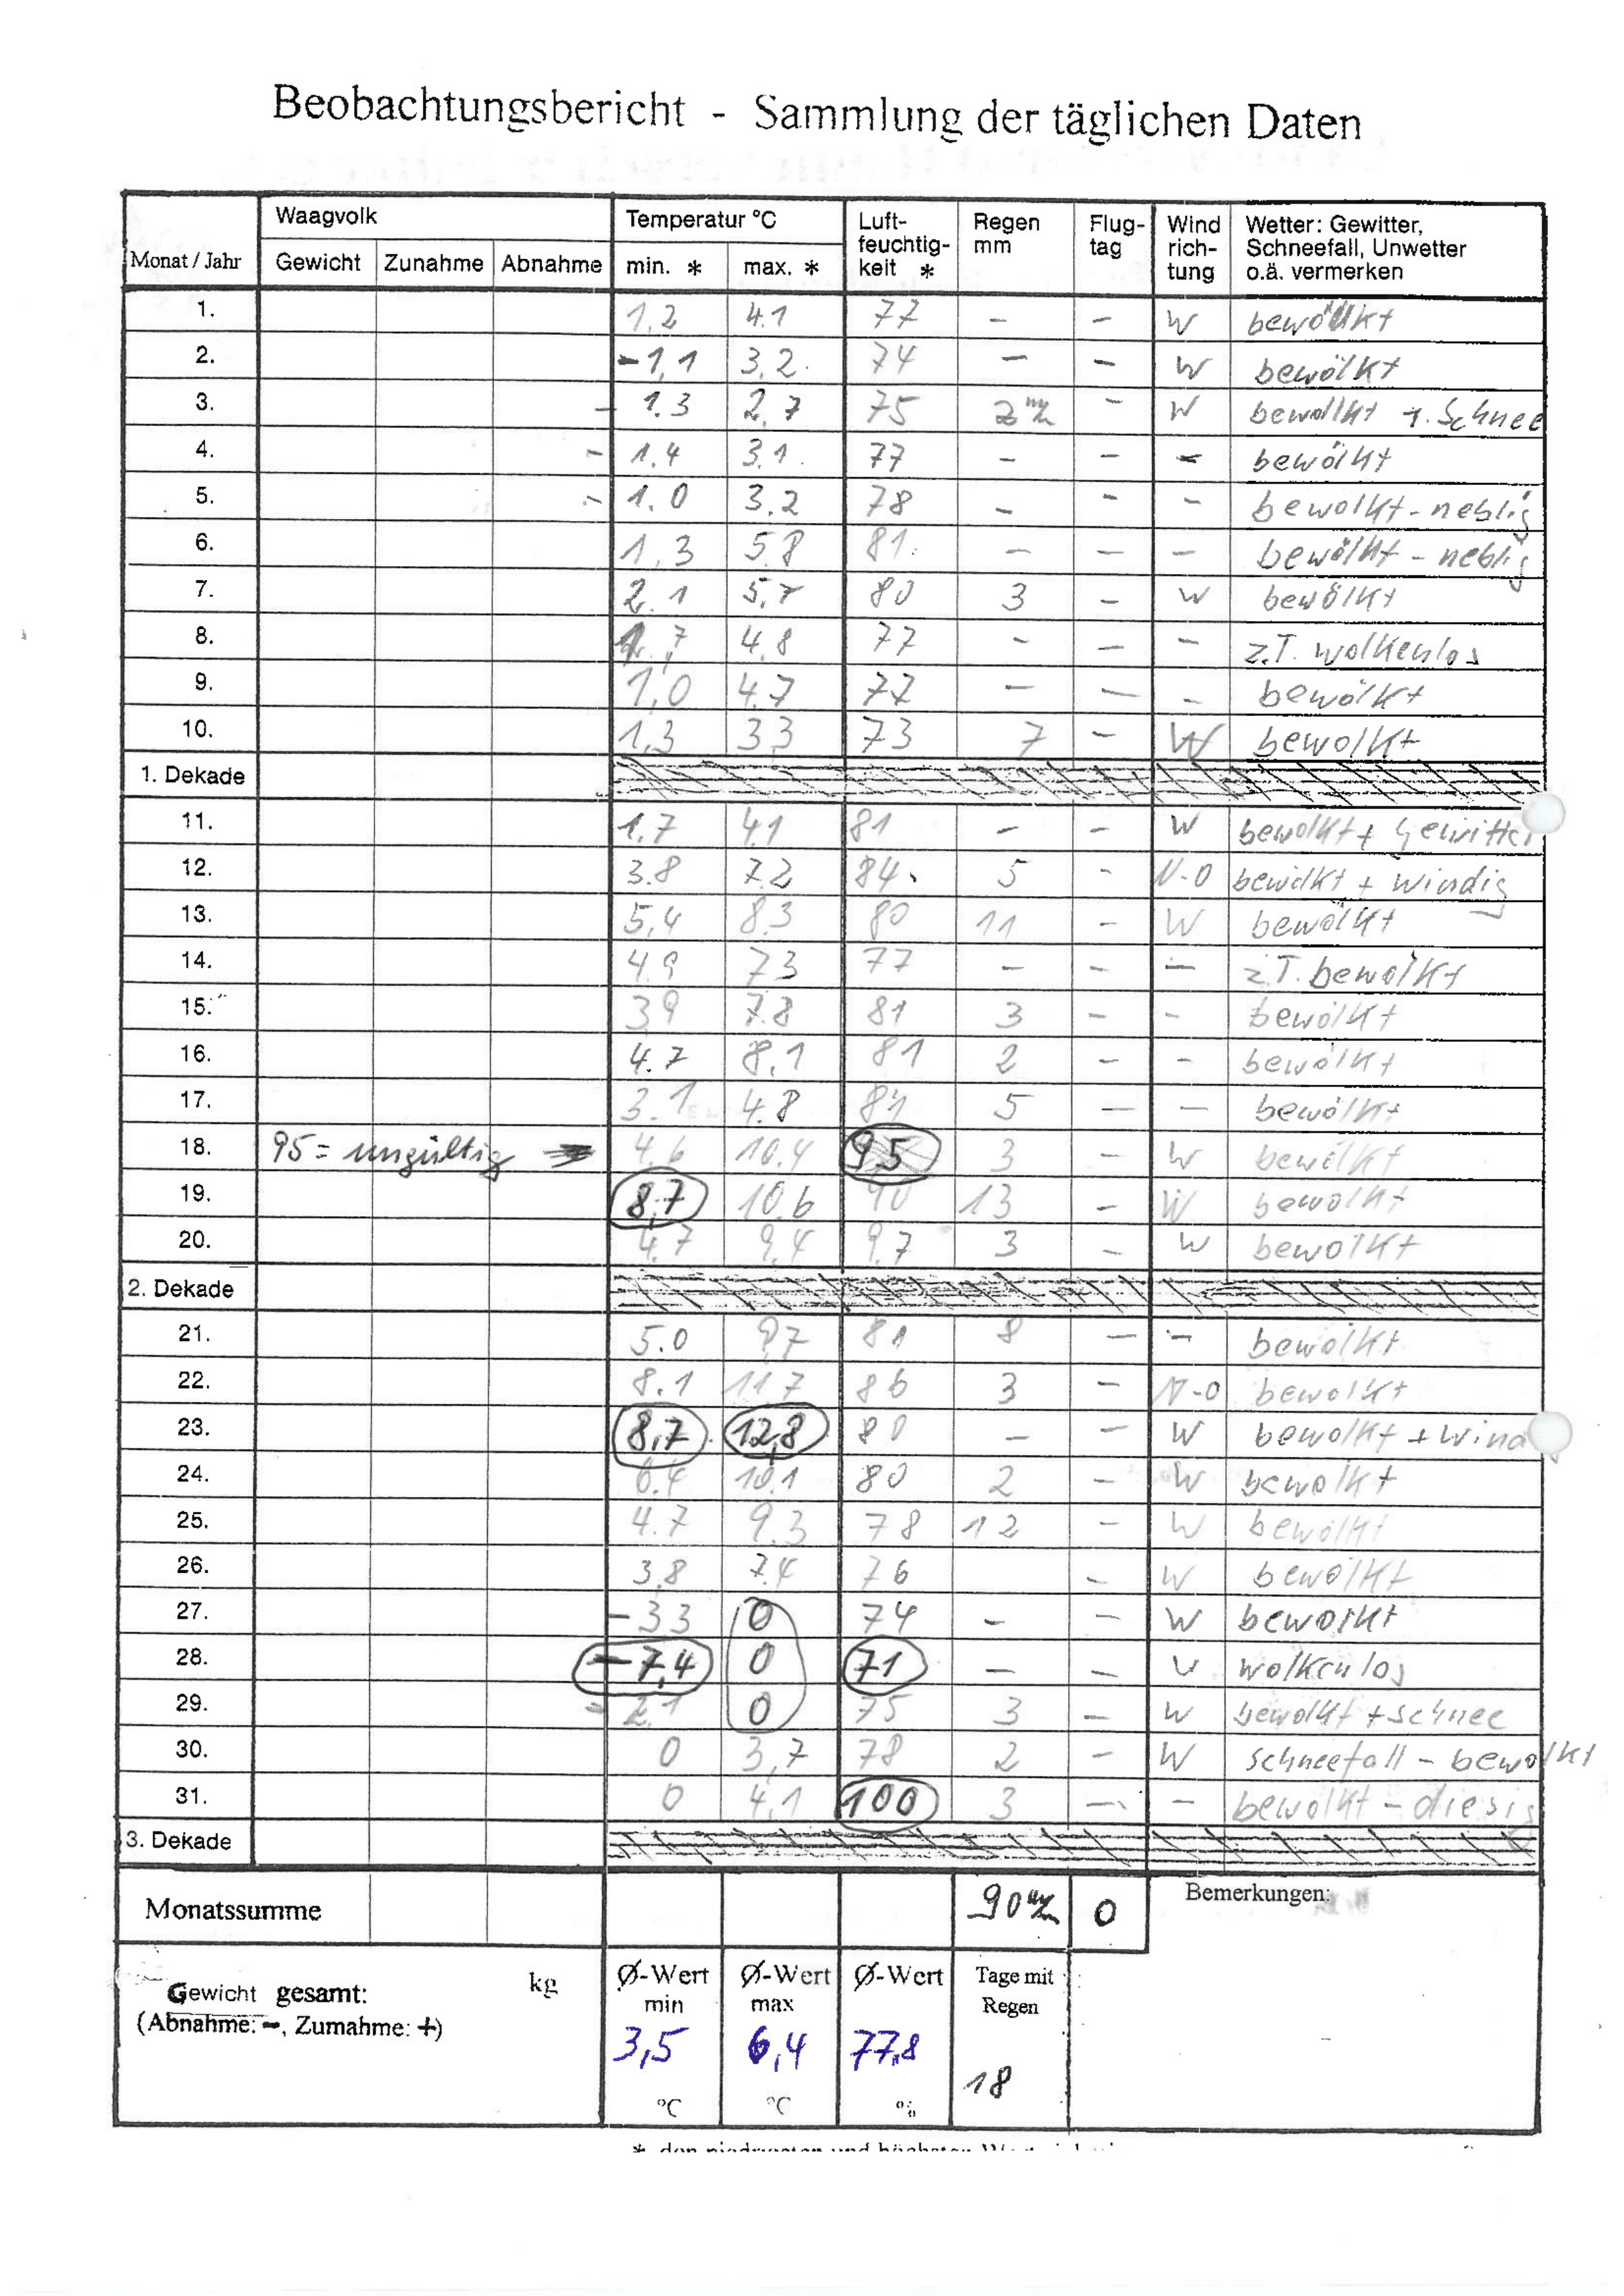 Beobachtungsbericht - Sammlung der täglichen Daten
Monat / Jahr Waagvolk Temperatur °C Luft-feuchtig-keit * Regen mm Flug-tag Wind rich-tung Wetter: Gewitter, Schneefall, Unwetter o.ä. vermerken
Gewicht Zunahme Abnahme min. * max. *
1. 1,2 4.1 77 - - W bewölkt
2. -1,1 3,2. 74 - - W bewölkt
3. - 1.3 2,7 75 2 mm - W bewölkt + Schnee
4. - 1.4 3.1. 77 - - - bewölkt
5. - 1.0 3.2 78 - - - bewolkt - neblig
6. 1,3 5.8 81. - - - bewölkt - neblig
7. 2.1 5,7 80 3 - W bewölkt
8. 1,7 4,8 77 - - - z.T. wolkenlos
9. 1,0 4.7 77 - - - bewölkt
10. 1,3 33 73 7 - W bewolkt
1. Dekade
11. 1.7 41 81 - - W bewolkt + Gewitter
12. 3.8 7.2 84. 5 - N-O bewölkt + windig
13. 5,4 8.3 80 11 - W bewölkt
14. 4.9 73 77 - - - z.T. bewölkt
15. 39 7.8 81 3 - - bewölkt
16. 4.7 8,1 81 2 - - bewölkt
17. 3.1 4.8 81 5 - - bewölkt
18. 95 = ungültig 4,6 10.4 95 3 - W bewölkt
19. 8,7 10.6 90 13 - W bewolkt
20. 4.7 9,4 9,7 3 - W bewolkt
2. Dekade
21. 5.0 9,7 81 8 - - bewölkt
22. 8.1 11 7 86 3 - N-O bewolkt
23. 8,7 12,8 80 - - W bewolkt + Wind
24. 6.4 10.1 80 2 - W bewolkt
25. 4.7 9.3 78 12 - W bewölkt
26. 3,8 7.4 76 - W bewölkt
27. -33 0 74 - - W bewölkt
28. -7,4 0 71 - - wolkenlos
29. - 2.1 0 75 3 - W bewolkt + schnee
30. 0 3,7 78 2 - W schneefall - bewolkt
31. 0 4,1 100 3 - - bewolkt - diesig
3. Dekade
Monatssumme 90 mm 0 Bemerkungen:
Gewicht gesamt: kg Ø-Wert min Ø-Wert max Ø-Wert Tage mit Regen
(Abnahme: -, Zumahme: +) 3,5 6,4 77,8 18
°C °C %